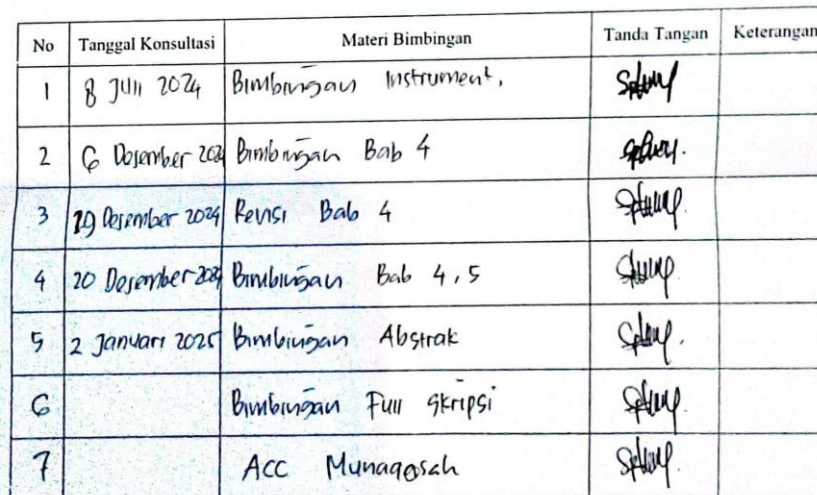 No Tanggal Konsultasi Materi Bimbingan Tanda Tangan Keterangan
1 8 Juli 2024 Bimbingan Instrument.
2 6 Desember 2024 Bimbingan Bab 4
3 19 Desember 2024 Revisi Bab 4
4 20 Desember 2024 Bimbingan Bab 4, 5
5 2 Januari 2025 Bimbingan Abstrak
6 Bimbingan Full Skripsi
7 ACC Munaqosah